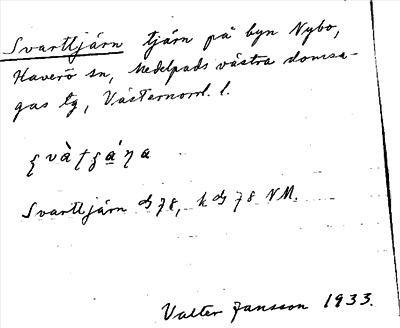 Svarttjärn tjärn på byn Nybo,
Haverö sn, Medelpads västra domsa-
gas tg, Västernorrl. l.
Svarttjärn ds 78, k ds 78 NM.
Valter Jansson 1933.